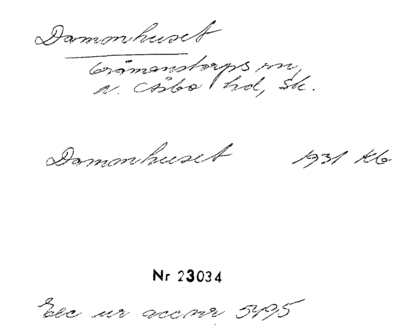 Damonhuset
Gråmanstorps sn,
N. Åsbo hd, Sk.
Damonhuset 1931 Kb
Nr 23034
Exc ur accnr 5495